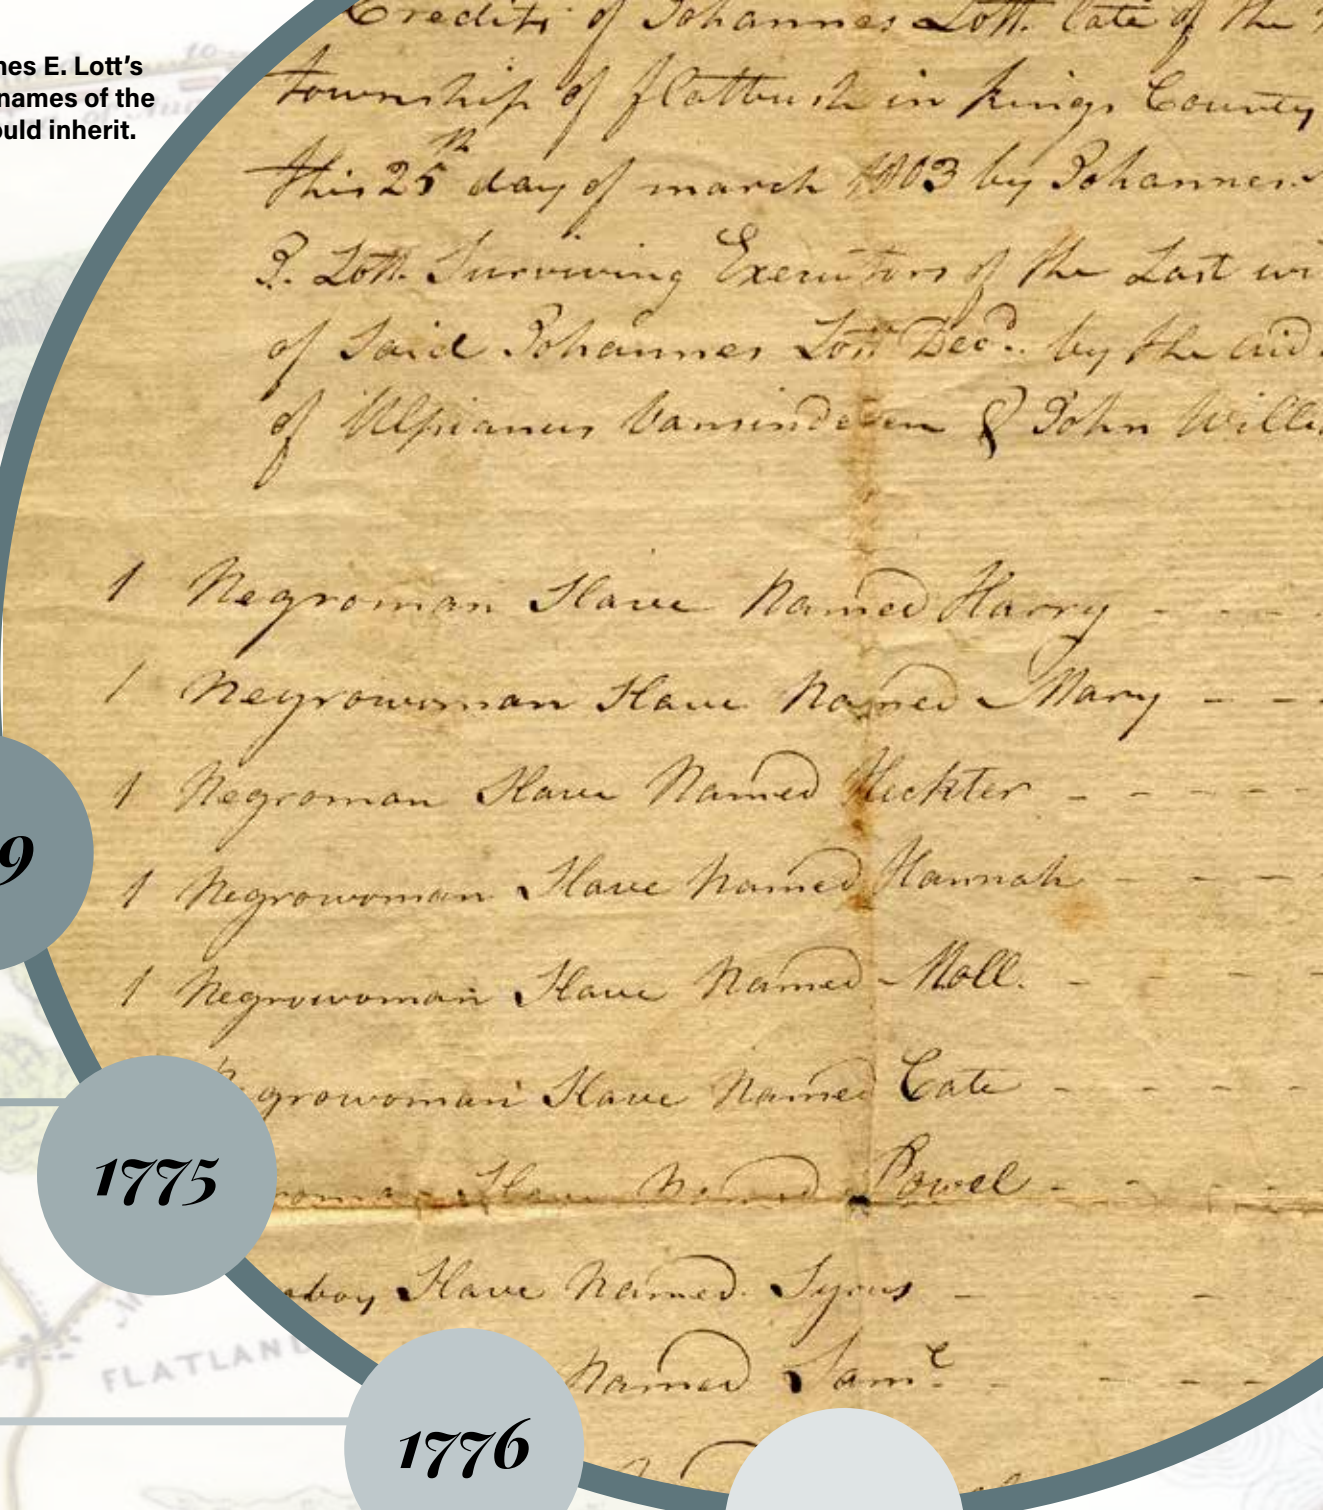 nes E. Lott's
names of the
ould inherit.
Credits of Johannes Lott. late of the
township of flatbush in kings County
this 25th day of march 1803 by Johannes
J. Lott. Surviving Executors of the Last wi
of Said Johannes Lott Decd. by the aid
of Ulpianus Vansinderen & John Willi
1 Negroman Slave Named Harry - - -
1 Negrowoman Slave Named Mary - - -
1 Negroman Slave Named Heckter - - - - -
1 Negrowoman Slave Named Hannah - - - -
1 Negrowoman Slave Named Moll. - - - -
growoman Slave Named Cate - - - - -
roman Slave Named Powel - - - -
boy Slave Named. Syrus - - - -
Named Saml. - - - -
9
1775
1776
FLATLAN